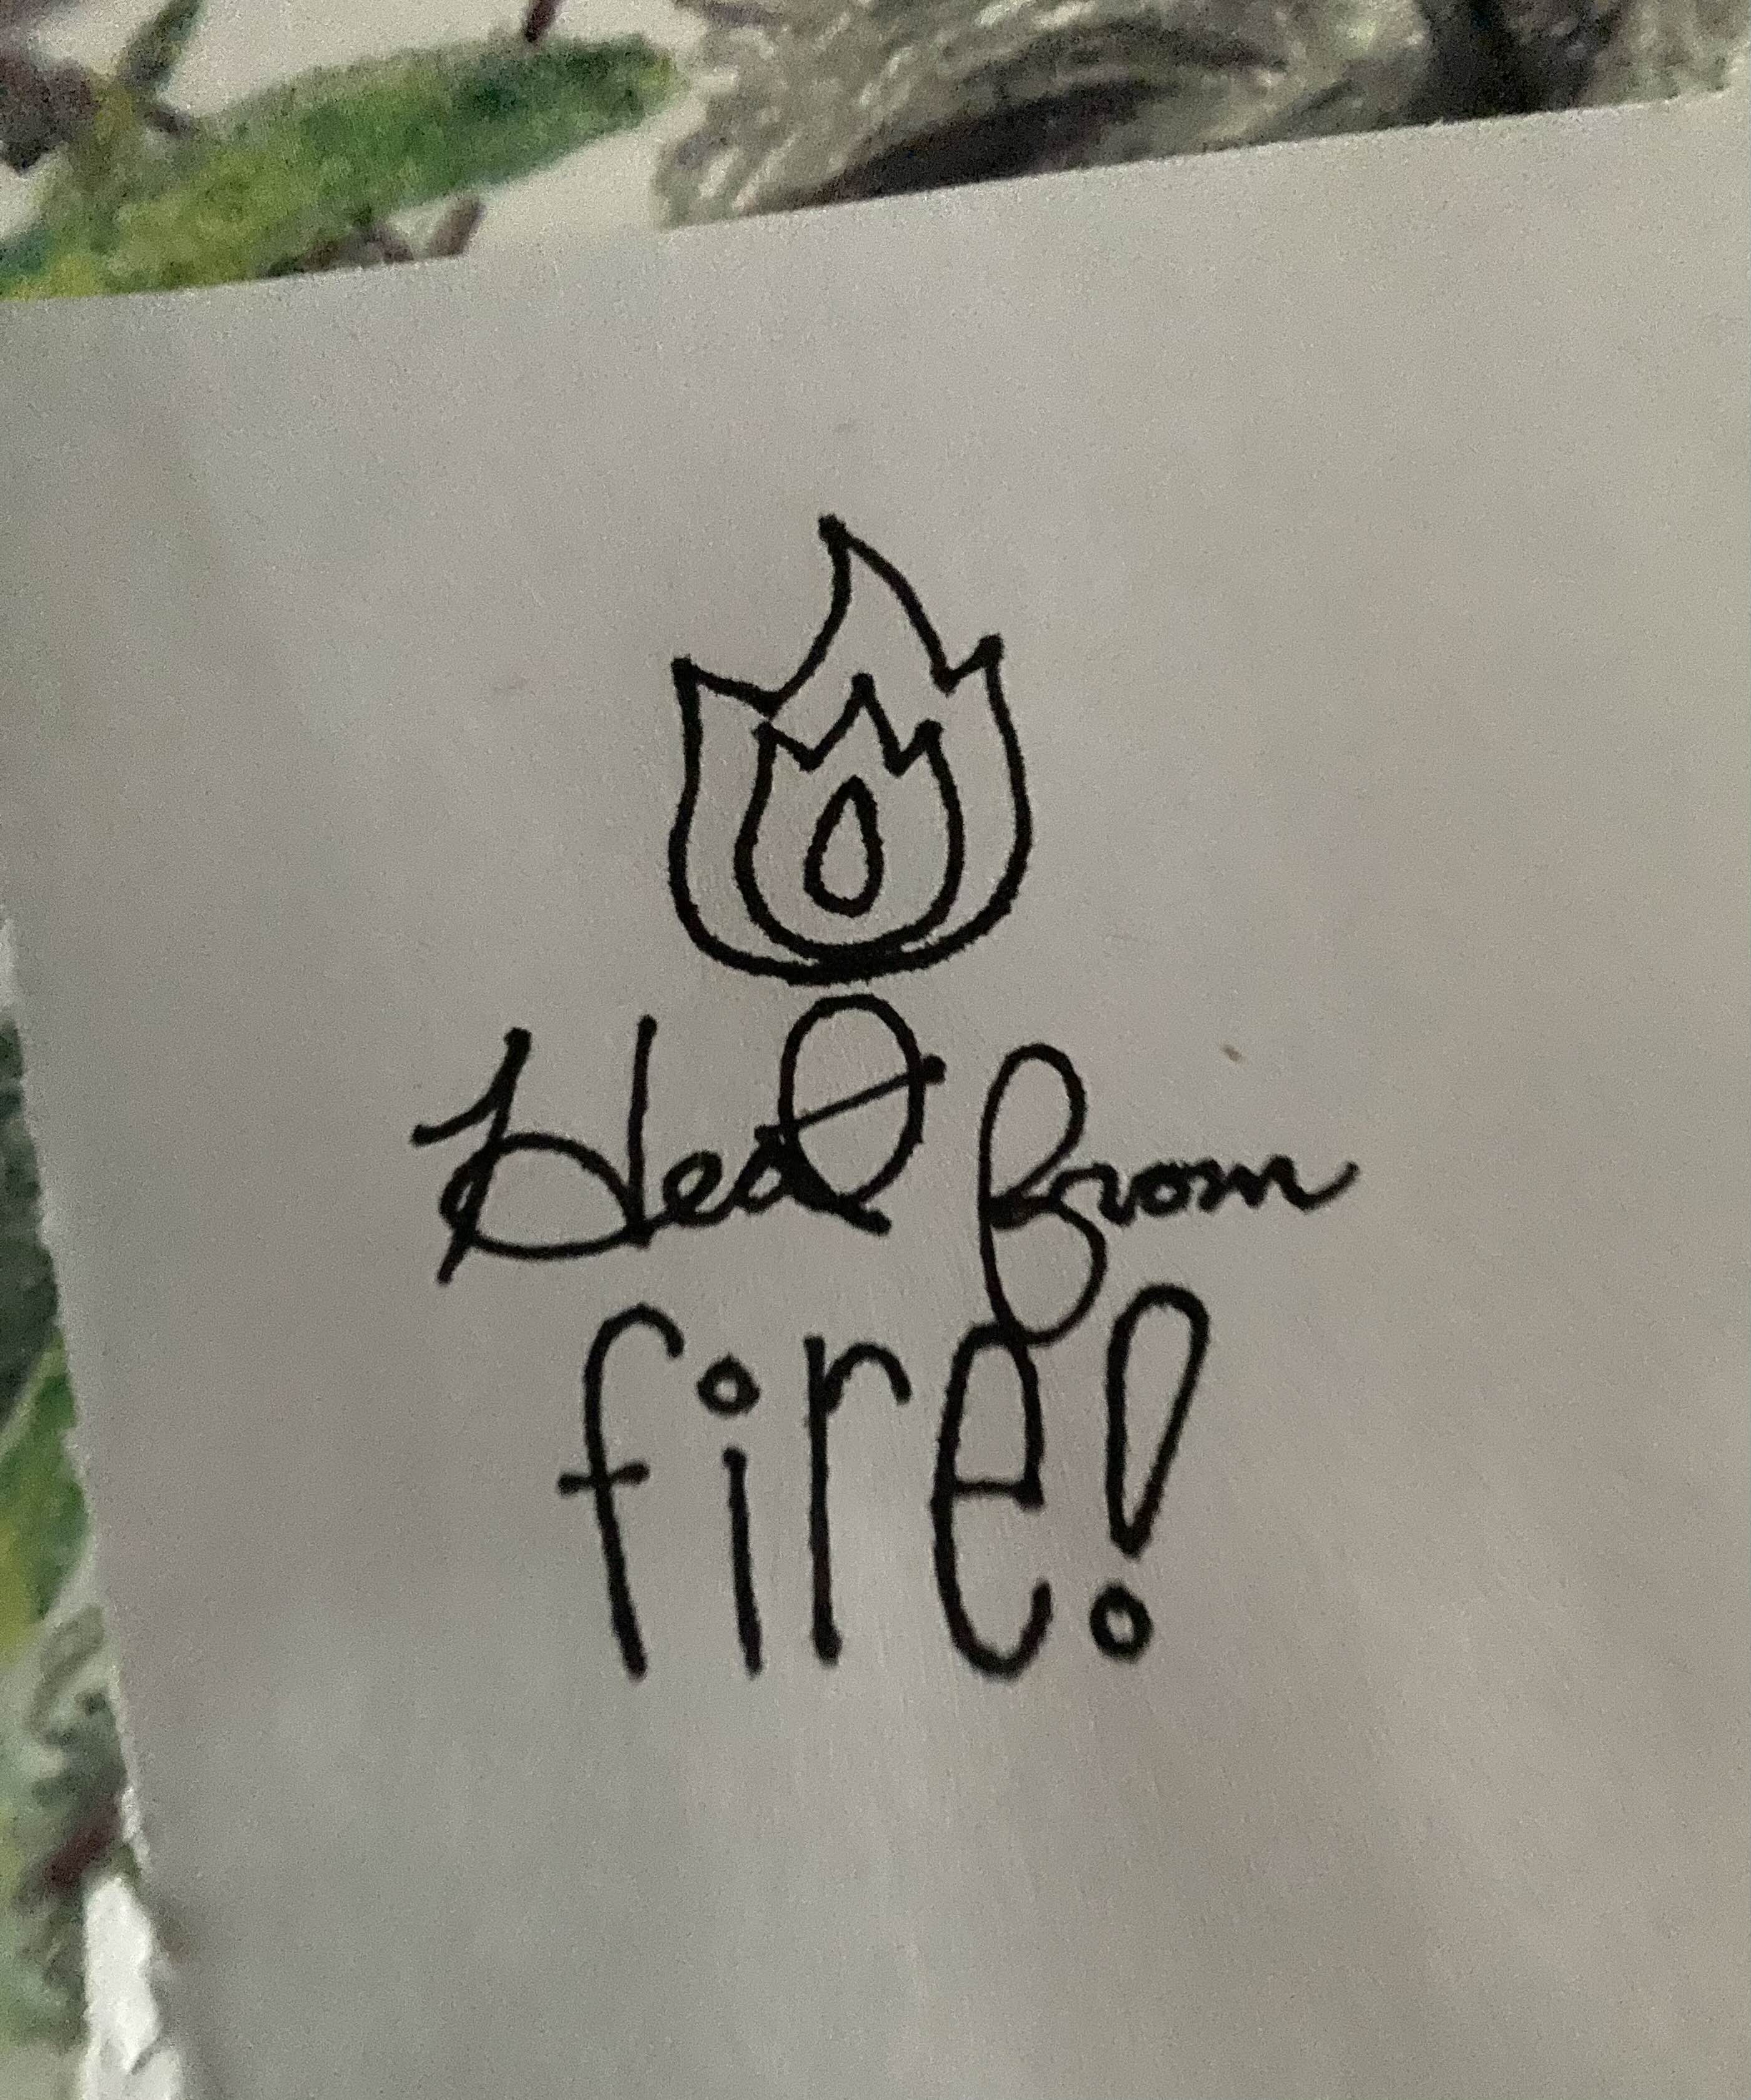 Heat from
fire!